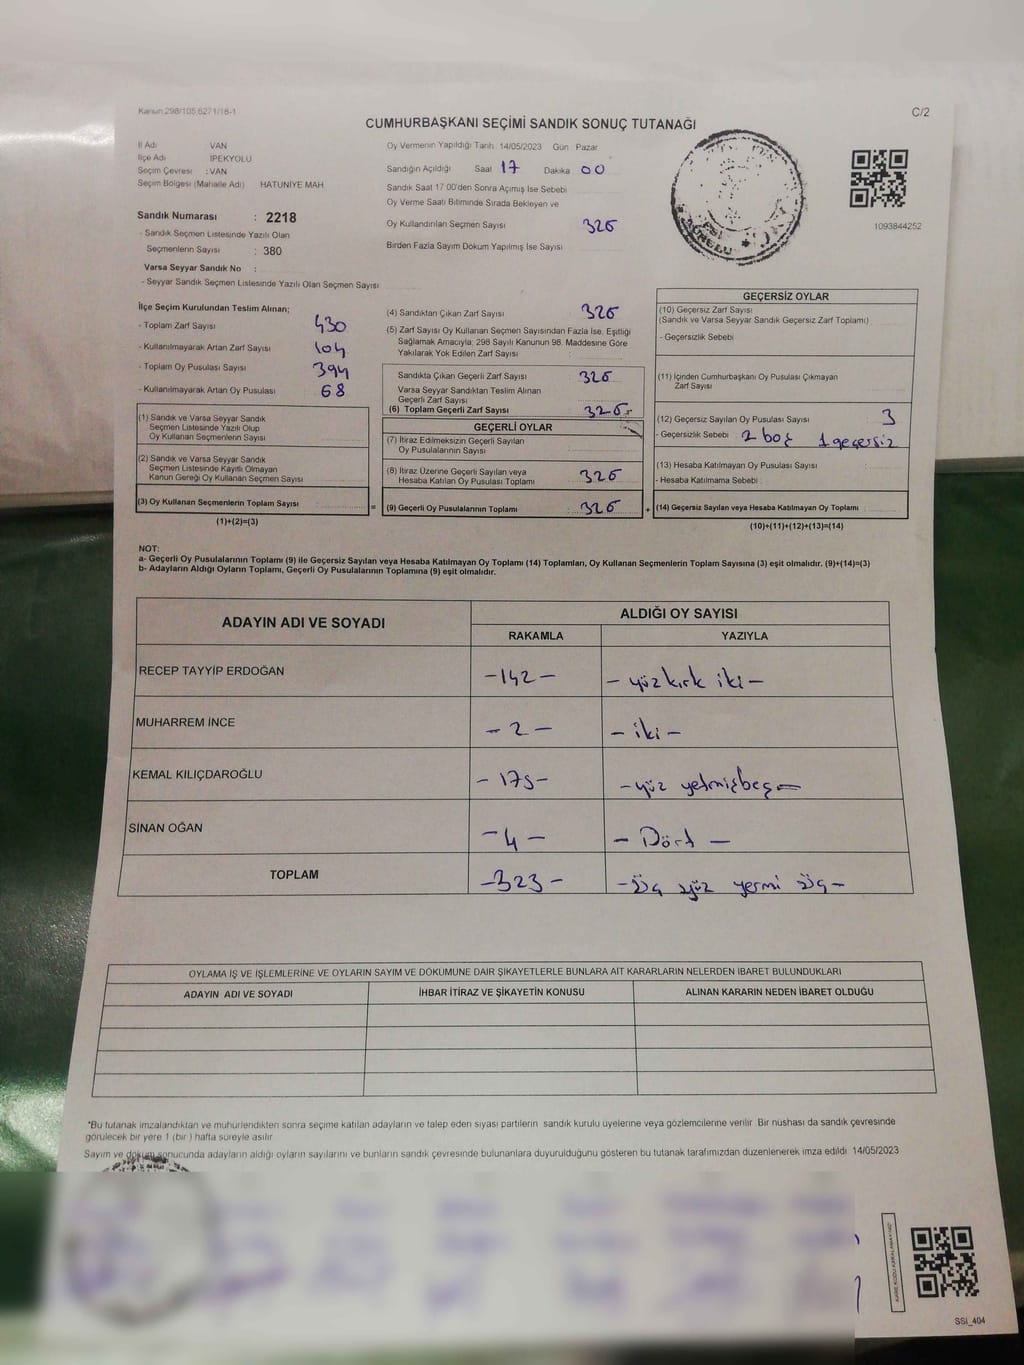 Kanun 298/105,6271/18-1
C/2
CUMHURBAŞKANI SEÇİMİ SANDIK SONUÇ TUTANAĞI
İl Adı VAN
İlçe Adı IPEKYOLU
Seçim Çevresi : VAN
Seçim Bölgesi (Mahalle Adı) HATUNIYE MAH.
Sandık Numarası : 2218
- Sandık Seçmen Listesinde Yazılı Olan
Seçmenlerin Sayısı : 380
Varsa Seyyar Sandık No :
- Seyyar Sandık Seçmen Listesinde Yazılı Olan Seçmen Sayısı
Oy Vermenin Yapıldığı Tarih 14/05/2023 Gün Pazar
Sandığın Açıldığı Saat 17 Dakika 00
Sandık Saat 17 00'den Sonra Açımış İse Sebebi
Oy Verme Saati Bitiminde Sırada Bekleyen ve
Oy Kullandırılan Seçmen Sayısı 326
Birden Fazla Sayım Döküm Yapılmış İse Sayısı
1093844252
İlçe Seçim Kurulundan Teslim Alınan;
- Toplam Zarf Sayısı 430
- Kullanılmayarak Artan Zarf Sayısı 104
- Toplam Oy Pusulası Sayısı 394
- Kullanılmayarak Artan Oy Pusulası 68
(1) Sandık ve Varsa Seyyar Sandık
Seçmen Listesinde Yazılı Olup
Oy Kullanan Seçmenlerin Sayısı
(2) Sandık ve Varsa Seyyar Sandık
Seçmen Listesinde Kayıtlı Olmayan
Kanun Gereği Oy Kullanan Seçmen Sayısı
(3) Oy Kullanan Seçmenlerin Toplam Sayısı
(1)+(2)=(3)
=
(4) Sandıktan Çıkan Zarf Sayısı 326
(5) Zarf Sayısı Oy Kullanan Seçmen Sayısından Fazla İse, Eşitliği
Sağlamak Amacıyla; 298 Sayılı Kanunun 98. Maddesine Göre
Yakılarak Yok Edilen Zarf Sayısı :
Sandıkta Çıkan Geçerli Zarf Sayısı 326
Varsa Seyyar Sandıktan Teslim Alınan
Geçerli Zarf Sayısı
(6) Toplam Geçerli Zarf Sayısı 326
GEÇERLİ OYLAR
(7) İtiraz Edilmeksizin Geçerli Sayılan
Oy Pusulalarının Sayısı
(8) İtiraz Üzerine Geçerli Sayılan veya
Hesaba Katılan Oy Pusulası Toplamı 326
(9) Geçerli Oy Pusulalarının Toplamı 326
+
GEÇERSİZ OYLAR
(10) Geçersiz Zarf Sayısı
(Sandık ve Varsa Seyyar Sandık Geçersiz Zarf Toplamı)
- Geçersizlik Sebebi
(11) İçinden Cumhurbaşkanı Oy Pusulası Çıkmayan
Zarf Sayısı
(12) Geçersiz Sayılan Oy Pusulası Sayısı 3
- Geçersizlik Sebebi 2 boş 1 geçersiz
(13) Hesaba Katılmayan Oy Pusulası Sayısı
- Hesaba Katılmama Sebebi :
(14) Geçersiz Sayılan veya Hesaba Katılmayan Oy Toplamı
(10)+(11)+(12)+(13)=(14)
NOT:
a- Geçerli Oy Pusulalarının Toplamı (9) ile Geçersiz Sayılan veya Hesaba Katılmayan Oy Toplamı (14) Toplamları, Oy Kullanan Seçmenlerin Toplam Sayısına (3) eşit olmalıdır. (9)+(14)=(3)
b- Adayların Aldığı Oyların Toplamı, Geçerli Oy Pusulalarının Toplamına (9) eşit olmalıdır.
ADAYIN ADI VE SOYADI ALDIĞI OY SAYISI
RAKAMLA YAZIYLA
RECEP TAYYİP ERDOĞAN -142- - yüzkırk iki -
MUHARREM İNCE - 2 - - iki -
KEMAL KILIÇDAROĞLU - 175 - - yüz yetmişbeş -
SİNAN OĞAN - 4 - - Dört -
TOPLAM -323- - üç yüz yermi üç -
OYLAMA İŞ VE İŞLEMLERİNE VE OYLARIN SAYIM VE DÖKÜMÜNE DAİR ŞİKAYETLERLE BUNLARA AİT KARARLARIN NELERDEN İBARET BULUNDUKLARI
ADAYIN ADI VE SOYADI İHBAR İTİRAZ VE ŞİKAYETİN KONUSU ALINAN KARARIN NEDEN İBARET OLDUĞU
*Bu tutanak imzalandıktan ve mühürlendikten sonra seçime katılan adayların ve talep eden siyasi partilerin sandık kurulu üyelerine veya gözlemcilerine verilir. Bir nüshası da sandık çevresinde
görülecek bir yere 1 (bir) hafta süreyle asılır.
Sayım ve döküm sonucunda adayların aldığı oyların sayılarını ve bunların sandık çevresinde bulunanlara duyurulduğunu gösteren bu tutanak tarafımızdan düzenlenerek imza edildi 14/05/2023
SSI_404